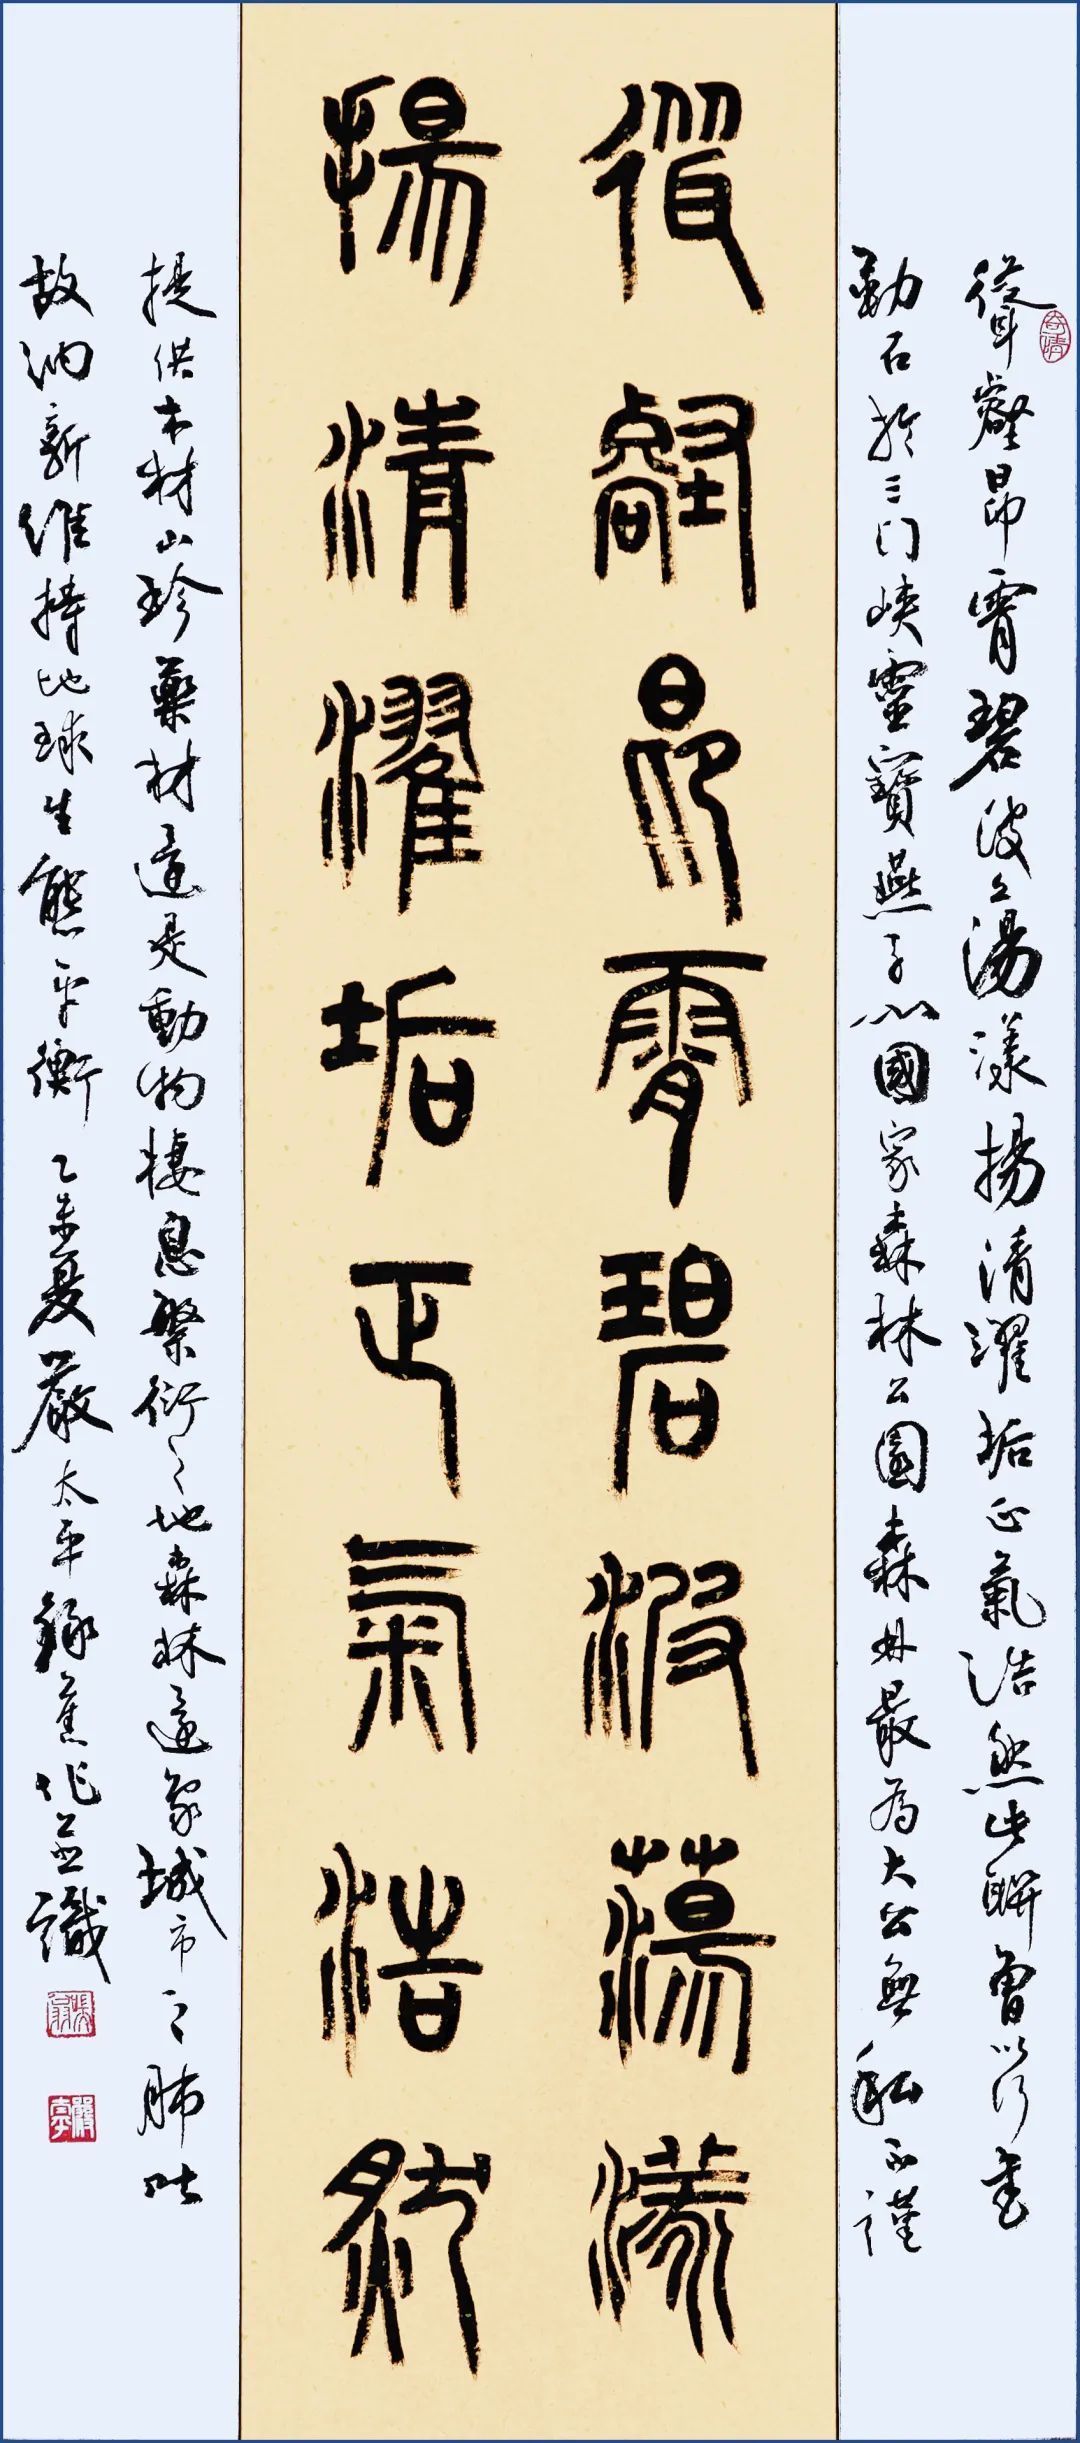 聳壑昂霄碧波蕩漾
揚清濯垢正氣浩然
聳壑昂霄碧波蕩漾揚清濯垢正氣浩然此聯曾以行書
勒石於三門峽靈寶燕子山國家森林公園森林最為大公無私不謹
提供木材山珍藥材還是動物棲息繁衍之地森林還象城市之肺吐
故納新維持地球生態平衡 乙未夏嚴太平錄舊作並識